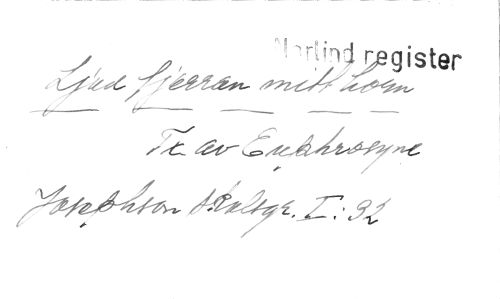 Norlind register
Ljud fjerran mitt horn
Tx av Euphrosyne
Josephson Skolsgr. I:32